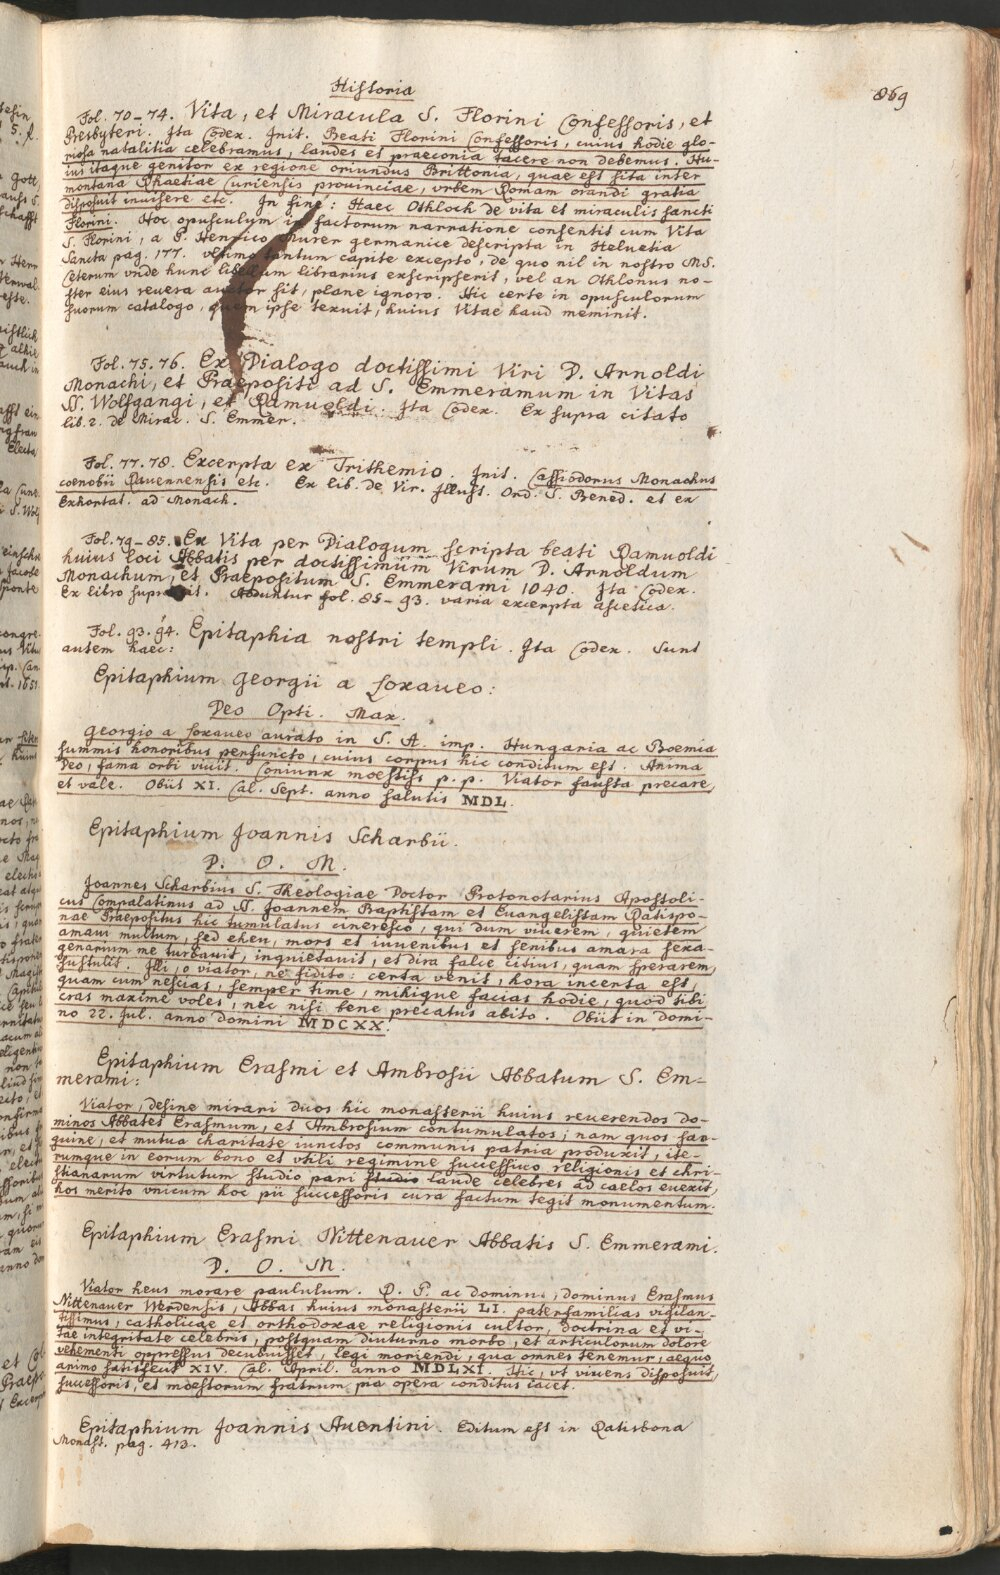 Historia
869
Fol. 70-74. Vita, et Miracula S. Florini Confessoris, et
Presbyteri. Ita Codex. Init. Beati Florini Confessoris, cuius hodie glo-
riosa natalitia celebramus, laudes et praeconia tacere non debemus. Hu-
ius itaque genitor ex regione oriundus Brittonia, quae est sita inter
montana Rhaetiae Curiensis prouinciae, vrbem Romam orandi gratia
disposuit inuisere etc. In fine: Haec Othloch de vita et miraculis sancti
Florini. Hoc opusculum in factorum narratione consentit cum Vita
S. Florini, a P. Henrico Murer germanice descripta in Heluetia
Sancta pag. 177. vltimo tantum capite excepto, de quo nil in nostro MS.
Ceterum vnde hunc libellum librarius exscripserit, vel an Othlonus no-
ster eius reuera auctor sit, plane ignoro. Hic certe in opusculorum
suorum catalogo, quem ipse texuit, huius Vitae haud meminit.
Fol. 75. 76. Ex Dialogo doctissimi Viri D. Arnoldi
Monachi, et Praepositi ad S. Emmeramum in Vitas
SS. Wolfgangi, et Ramuoldi. Ita Codex. Ex supra citato
lib. 2. de Mirac. S. Emmer.
Fol. 77. 78. Excerpta ex Trithemio. Init. Cassiodorus Monachus
coenobii Rauennensis etc. Ex lib. de Vir. Illust. Ord. S. Bened. et ex
Exhortat. ad Monach.
Fol. 79-85. Ex Vita per Dialogum scripta beati Ramuoldi
huius loci Abbatis per doctissimum Virum D. Arnoldum
Monachum, et Praepositum S. Emmerami 1040. Ita Codex.
Ex libro supra cit. Adduntur fol. 85-93. varia excerpta ascetica.
Fol. 93. 94. Epitaphia nostri templi. Ita Codex. Sunt
autem haec:
Epitaphium Georgii a Loxaueo:
Deo Opti. Max.
Georgio a Loxaueo aurato in S. A. imp. Hungaria ac Boemia
summis honoribus perfuncto, cuius corpus hic conditum est. Anima
Deo, fama orbi viuit. Coniunx moestiss p. p. Viator fausta precare,
et vale. Obiit XI. Cal. Sept. anno salutis MDL.
Epitaphium Joannis Scharbii.
D. O. M.
Joannes Scharbius S. Theologiae Doctor Protonotarius Apostoli-
cus Compalatinus ad SS. Joannem Baptistam et Euangelistam Ratispo-
nae Praepositus hic tumulatus cineresco, qui dum viuerem, quietem
amaui multum, sed eheu, mors et iuuenibus et senibus amara sexa-
genarium me turbauit, inquietauit, et dira falce citius, quam sperarem,
sustulit. Illi, o viator, ne fidito: certa venit, hora incerta est,
quam cum nescias, semper time, mihique facias hodie, quod tibi
cras maxime voles, nec nisi bene precatus abito. Obiit in domi-
no 22. Jul. anno domini MDCXX.
Epitaphium Erasmi et Ambrosii Abbatum S. Em-
merami:
Viator, desine mirari duos hic monasterii huius reuerendos do-
minos Abbates Erasmum, et Ambrosium contumulatos; nam quos san-
guine, et mutua charitate iunctos communis patria produxit, ite-
rumque in eorum bono et vtili regimine successiuo religionis et chri-
stianarum virtutum studio pari studio laude celebres ad caelos euexit,
hos merito vnicum hoc pii successoris cura factum tegit monumentum.
Epitaphium Erasmi Nittenauer Abbatis S. Emmerami.
D. O. M.
Viator heus morare paululum. R. P. ac dominus, dominus Erasmus
Nittenauer Werdensis, Abbas huius monasterii LI. paterfamilias vigilan-
tissimus, catholicae et orthodoxae religionis cultor, doctrina et vi-
tae integritate celebris, postquam diuturno morbo, et articulorum dolore
vehementi oppressus decubuisset, legi moriendi, qua omnes tenemur, aequo
animo satisfecit XIV. Cal. April. anno MDLXI. Hic, vt viuens disposuit,
successoris, et moestorum fratrum pia opera conditus iacet.
Epitaphium Joannis Auentini. Editum est in Ratisbona
Monast. pag. 413.